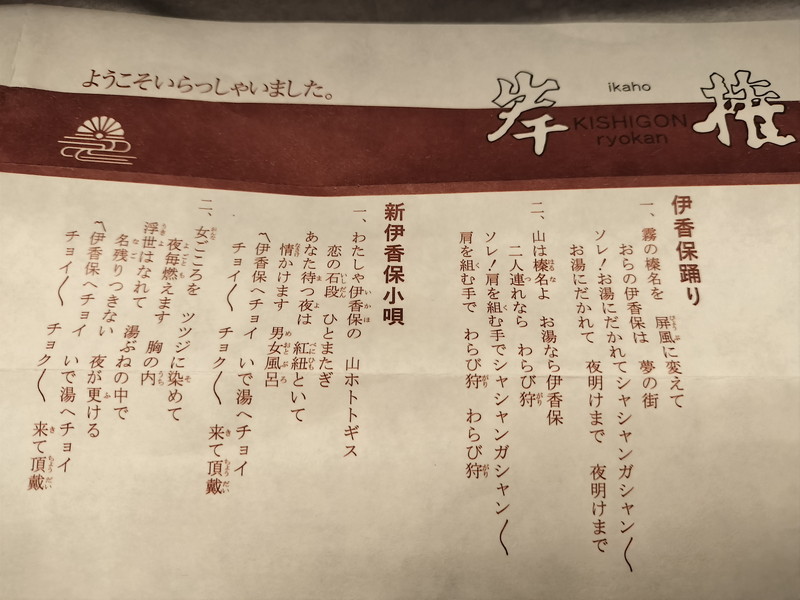 ようこそいらっしゃいました。
岸権
ikaho
KISHIGON
ryokan
伊香保踊り
一、霧の榛名を　屏風に変えて
おらの伊香保は　夢の街
ソレ！お湯にだかれてシャシャンガシャン〱
お湯にだかれて　夜明けまで　夜明けまで
二、山は榛名よ　お湯なら伊香保
二人連れなら　わらび狩
ソレ！肩を組む手でシャシャンガシャン〱
肩を組む手で　わらび狩　わらび狩
新伊香保小唄
一、わたしゃ伊香保の　山ホトトギス
恋の石段　ひとまたぎ
あなた待つ夜は　紅紐といて
情かけます　男女風呂
〽伊香保へチョイ　いで湯へチョイ
チョイ〱　チョク〱　来て頂戴
二、女ごころを　ツツジに染めて
夜毎燃えます　胸の内
浮世はなれて　湯ぶねの中で
名残りつきない　夜が更ける
〽伊香保へチョイ　いで湯へチョイ
チョイ〱　チョク〱　来て頂戴